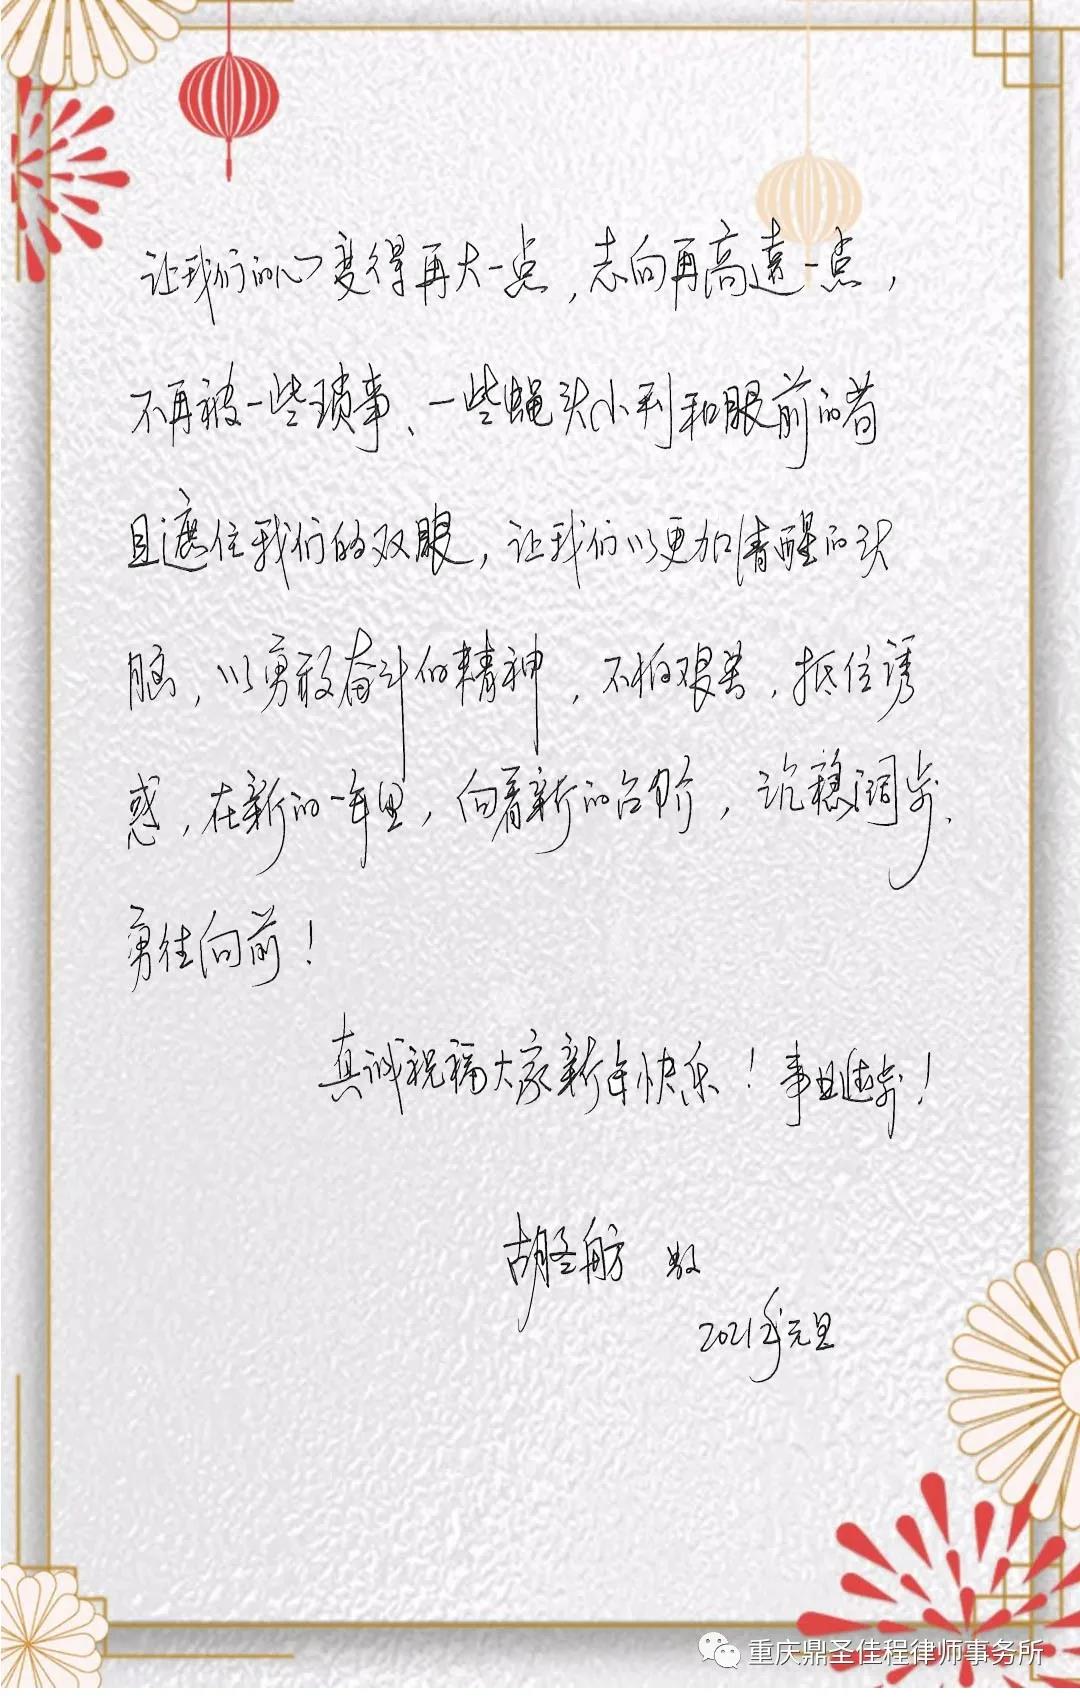 让我们的心变得再大一点，志向再高远一点，
不再被一些琐事、一些蝇头小利和眼前的苟
且遮住我们的双眼，让我们以更加清醒的头
脑，以勇敢奋斗的精神，不怕艰苦，抵住诱
惑，在新的一年里，向着新的台阶，沉稳阔步、
勇往向前！
真诚祝福大家新年快乐！事业进步！
胡圣舫 敬
2021年元旦
重庆鼎圣佳程律师事务所